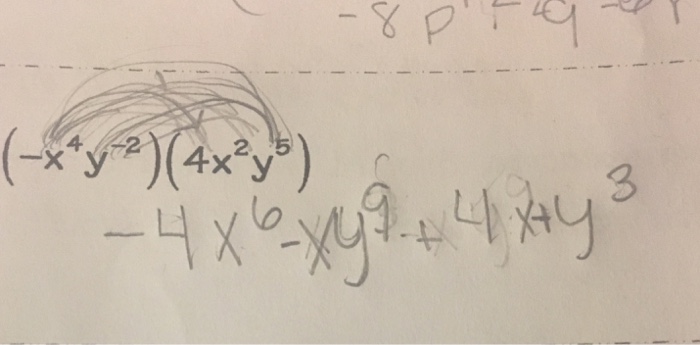 -8p
(-x⁴y⁻²)(4x²y⁵)
-4x⁶-xy⁹+4x+y³